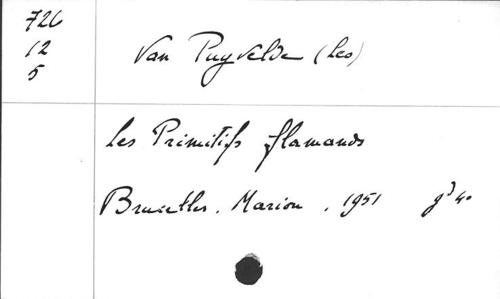 726
12
5
Van Puyvelde (Leo)
Les Primitifs flamands
Bruxelles. Marion. 1951 gd 4o